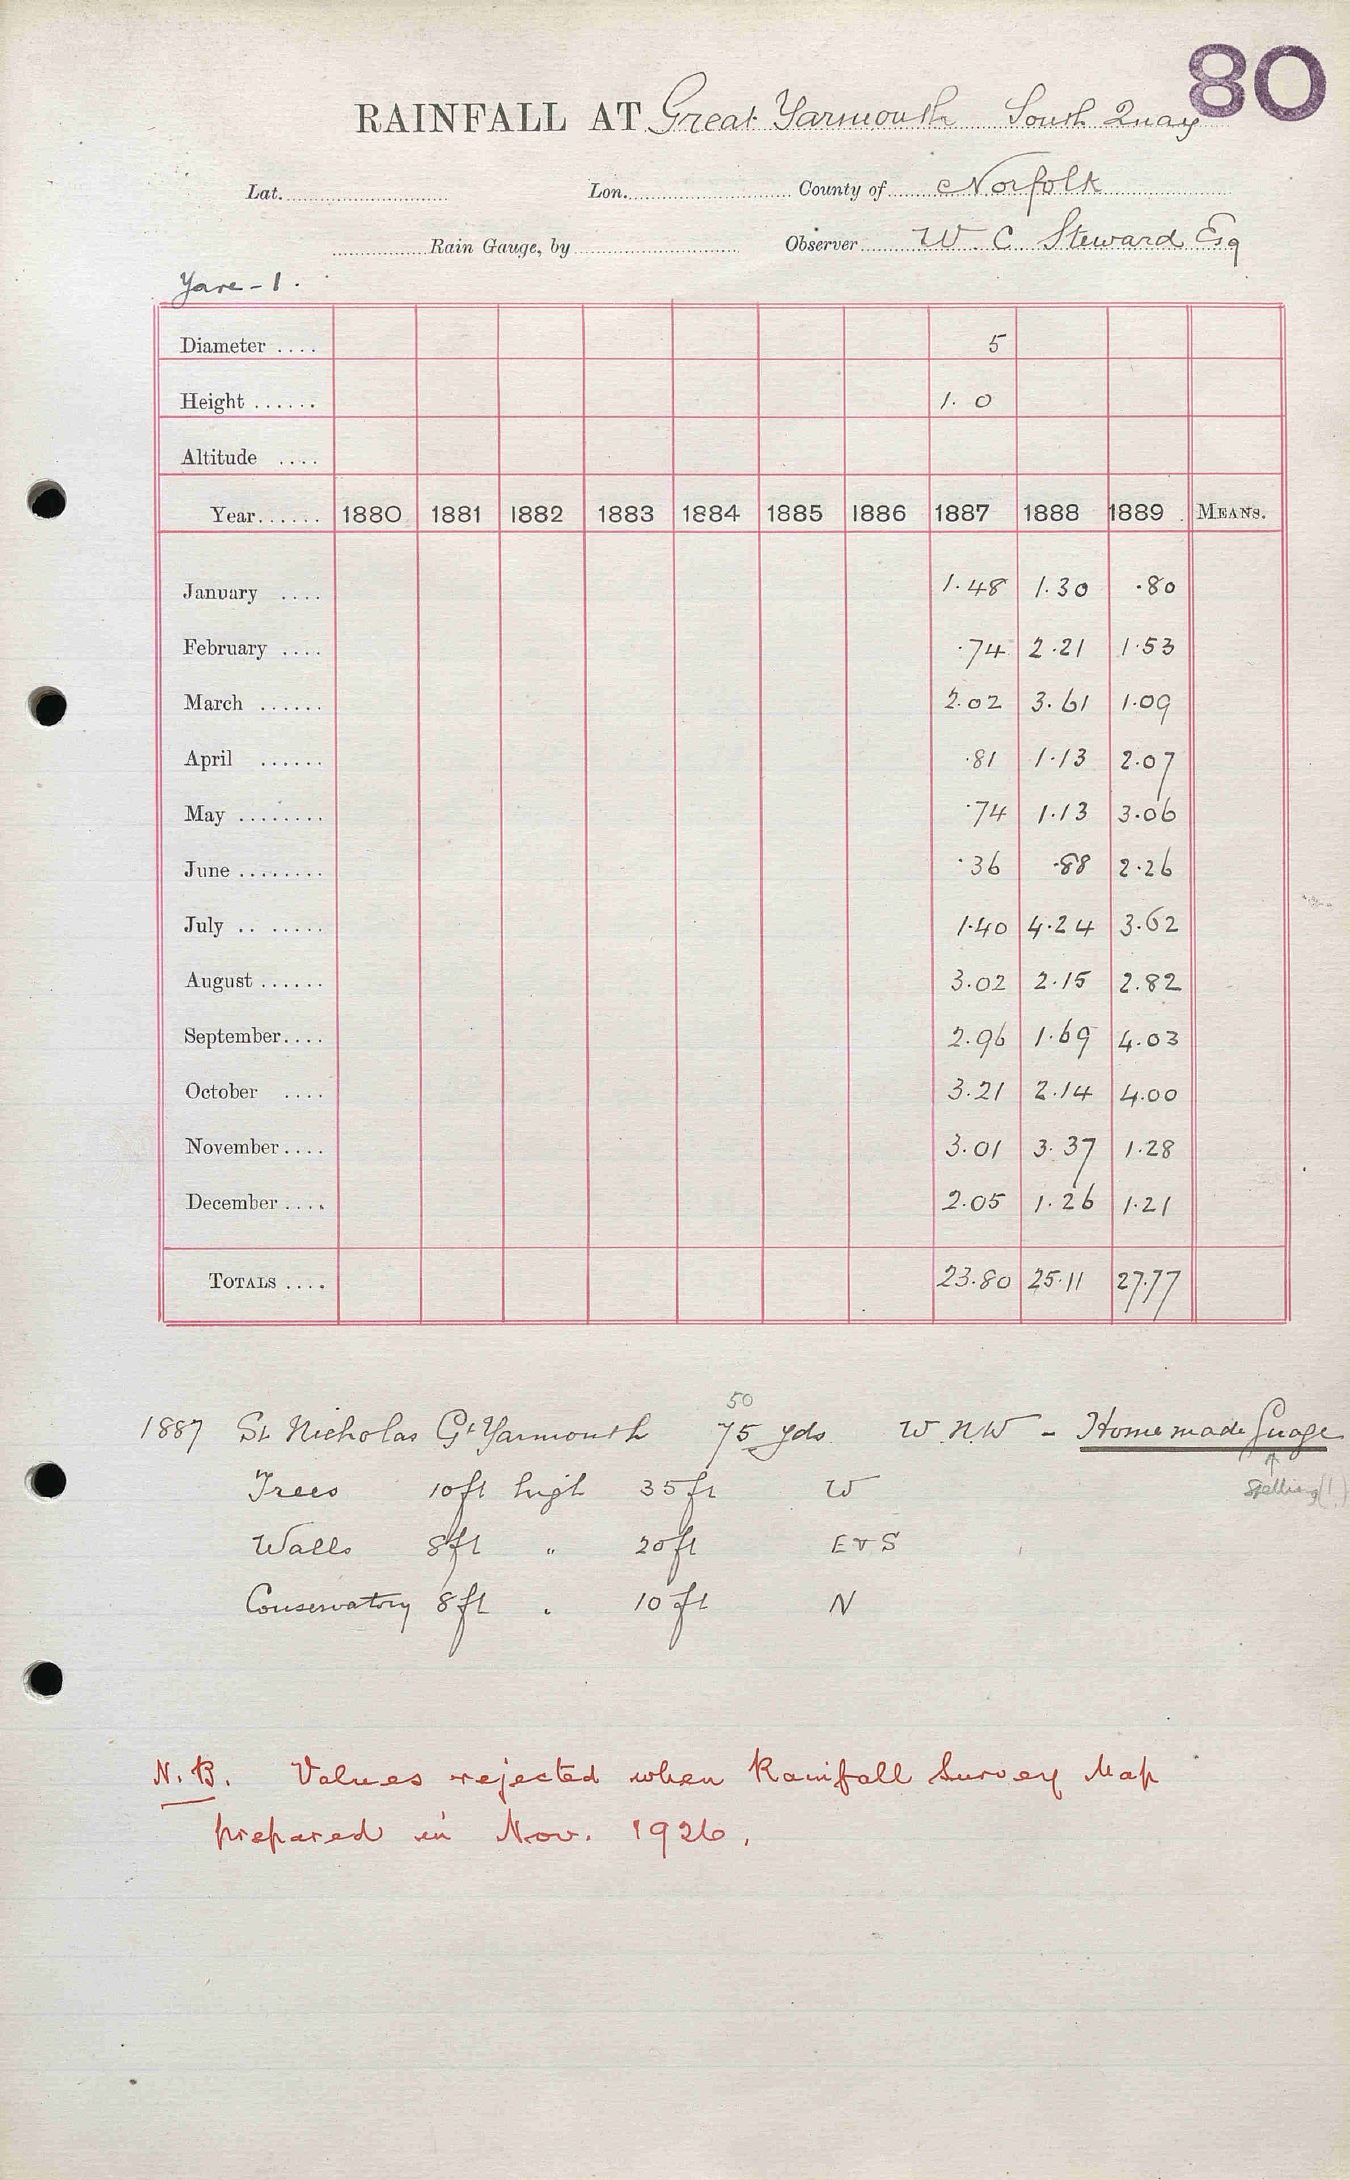 80
RAINFALL AT Great Yarmouth South Quay
Lat. Lon. County of Norfolk
Rain Gauge, by Observer W. C. Steward Esq
Yare - 1.
Diameter .... 5
Height ...... 1. 0
Altitude ....
Year...... 1880 1881 1882 1883 1884 1885 1886 1887 1888 1889 MEANS.
January .... 1.48 1.30 .80
February .... .74 2.21 1.53
March ...... 2.02 3.61 1.09
April ...... .81 1.13 2.07
May ........ .74 1.13 3.06
June ........ .36 .88 2.26
July .. ..... 1.40 4.24 3.62
August ...... 3.02 2.15 2.82
September.... 2.96 1.69 4.03
October .... 3.21 2.14 4.00
November.... 3.01 3.37 1.28
December .... 2.05 1.26 1.21
TOTALS .... 23.80 25.11 27.77
50
1887 St Nicholas Gt Yarmouth 75 yds W.N.W - Home made Guage
Spelling (!)
Trees 10ft high 35ft W
Walls 8ft " 20ft E & S
Conservatory 8ft " 10ft N
N.B. Values rejected when Rainfall Survey Map
prepared in Nov. 1926.